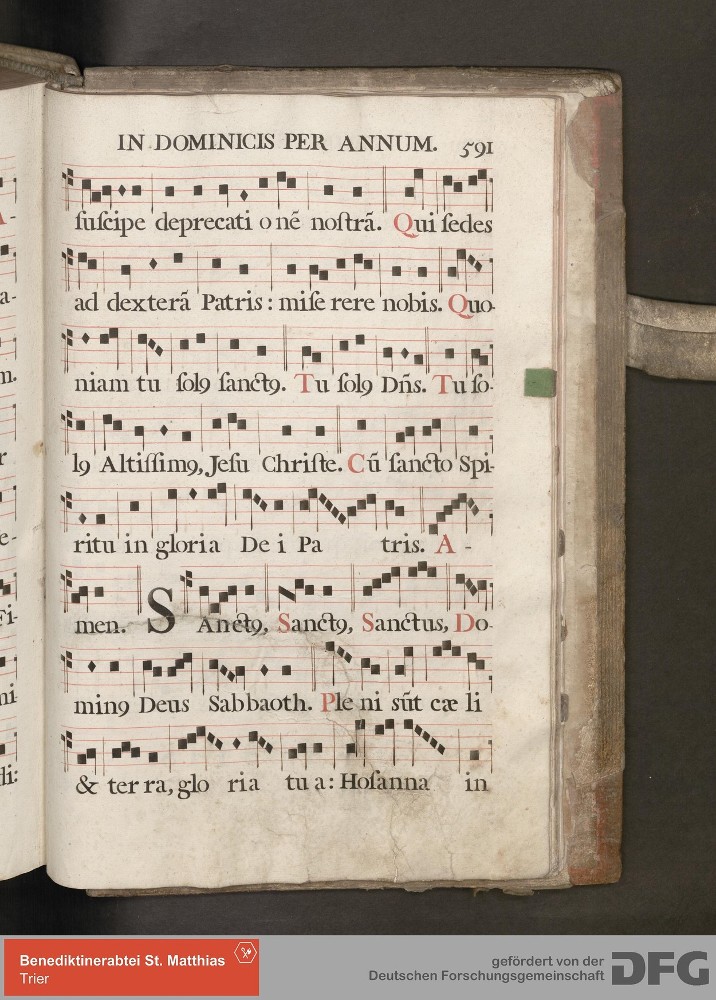 IN DOMINICIS PER ANNUM. 591
ſuſcipe deprecati onē noſtrã. Qui ſedes
ad dexterã Patris: miſe rere nobis. Quo-
niam tu ſolꝰ ſanctꝰ. Tu ſolꝰ Dñs. Tu ſo-
lꝰ Altiſſimꝰ, Jeſu Chriſte. Cũ ſancto Spi-
ritu in gloria De i Pa tris. A -
men. SAnctꝰ, Sanctꝰ, Sanctus, Do-
minꝰ Deus Sabbaoth. Ple ni sũt cæ li
& ter ra, glo ria tu a: Hoſanna in
A-
a-
m.
r
e-
Fi-
ni-
li:
Benediktinerabtei St. Matthias
Trier
gefördert von der
Deutschen Forschungsgemeinschaft
DFG